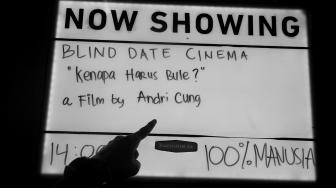 NOW SHOWING
BLIND DATE CINEMA
"KENAPA HARUS BULE?"
a Film by Andri Cung
14:00
100% MANUSIA